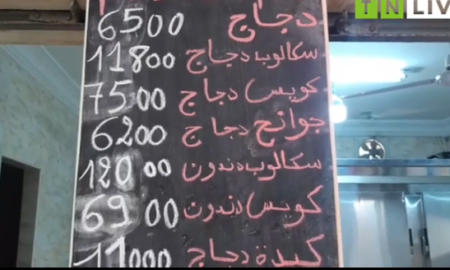 TN LIV
دجاج 6500
سكالوب دجاج 11800
كويس دجاج 7500
جوانح دجاج 6200
سكالوب دندون 12000
كويس دندون 6900
كبدة دجاج 11000